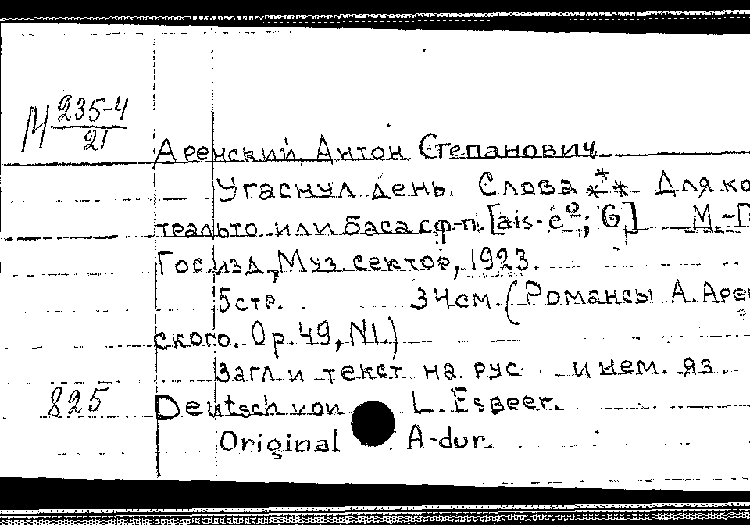 М 235-4
21
Аренский, Антон Степанович
Угаснул день. Слова *** Для ко
тральто или баса с ф-п. [ais-e²; G,] М.-П
Госизд., Муз. сектор, 1923.
5 стр. 34 см. (Романсы А. Арен
ского. Op. 49, N1.)
Загл. и текст на рус и нем. яз.
825 Deutsch von L. Esbeer.
Original A-dur.